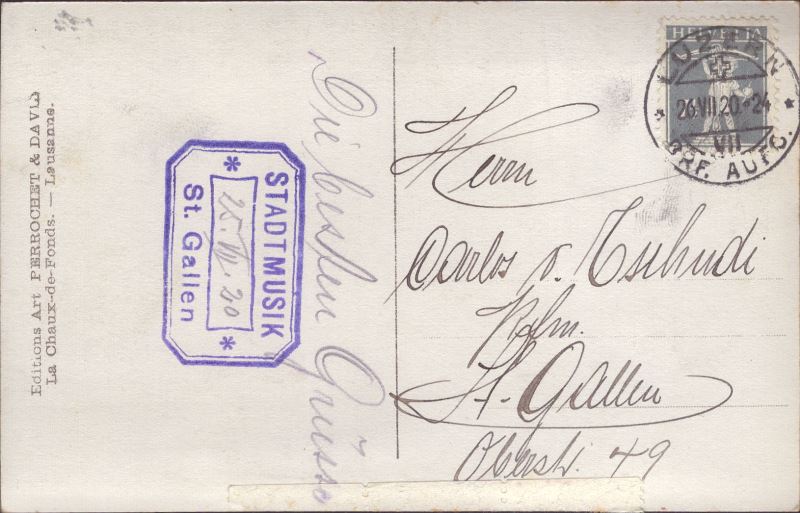 Editions Art PERROCHET & DAVID
La Chaux-de-Fonds. — Lausanne.
STADTMUSIK
* 25. VII. 20 *
St. Gallen
Die besten Grüsse
HELVETIA
LUZERN
26.VII.20-24
VII
BRF. AUFG.
Herrn
Carlos v. Tschudi
Kfm.
St. Gallen
Oberstr. 49